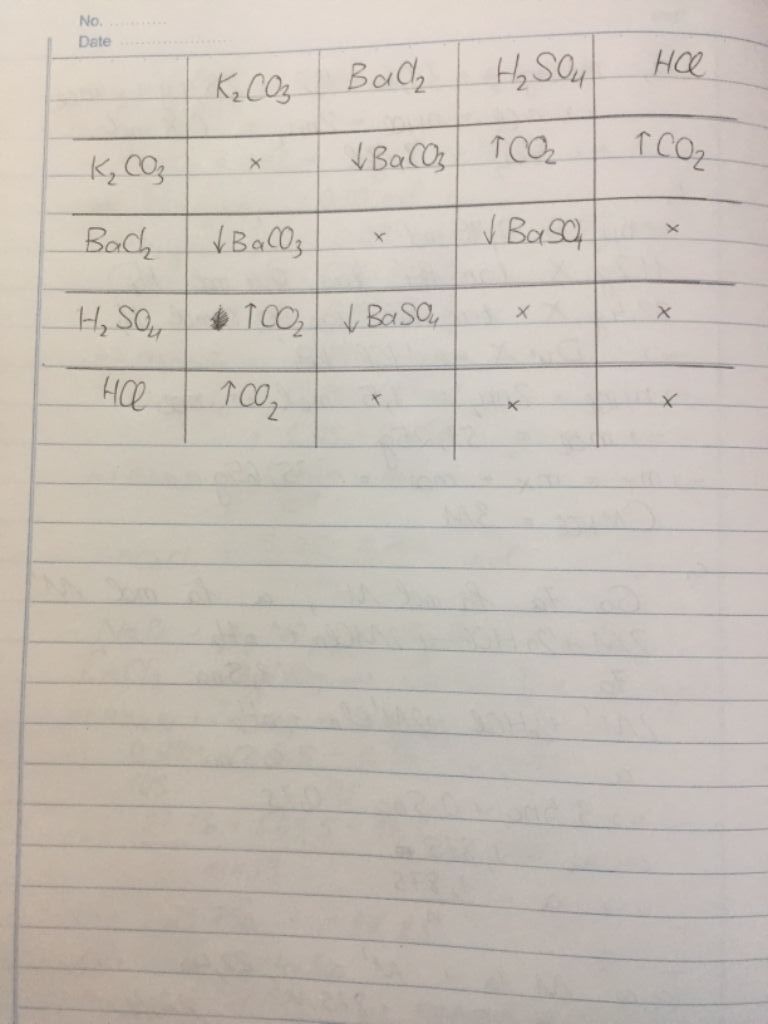 No. ............
Date ........................
K₂CO₃ BaCl₂ H₂SO₄ HCl
K₂CO₃ × ↓BaCO₃ ↑CO₂ ↑CO₂
BaCl₂ ↓BaCO₃ × ↓BaSO₄ ×
H₂SO₄ ↑CO₂ ↓BaSO₄ × ×
HCl ↑CO₂ × × ×